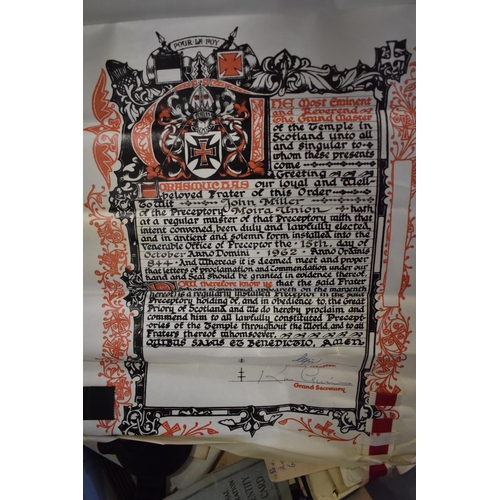 POUR LA FOY
The Most Eminent
and Reverend
The Grand Master
of the Temple in
Scotland unto all
and singular to
whom these presents
come
Greeting
Forasmuch as our loyal and Well
beloved Frater of this Order
To Wit John Miller
of the Preceptory Moira Union hath
at a regular muster of that Preceptory with that
intent convened, been duly and lawfully elected,
and in antient and solemn form installed into the
Venerable Office of Preceptor the 15th. day of
October Anno Domini 1962 Anno Ordinis
844 And Whereas it is deemed meet and proper
that letters of proclamation and Commendation under our
hand and Seal should be granted in evidence thereof.
therefore know ye that the said Frater
is a regularly installed Preceptor in the said
Preceptory holding of, and in obedience to the Great
Priory of Scotland and We do hereby proclaim and
commend him to all lawfully constituted Precept-
ories of the Temple throughout the World, and to all
Fraters thereof whomsoever.
QUIBUS SALUS ET BENEDICTIO, Amen
Grand Secretary